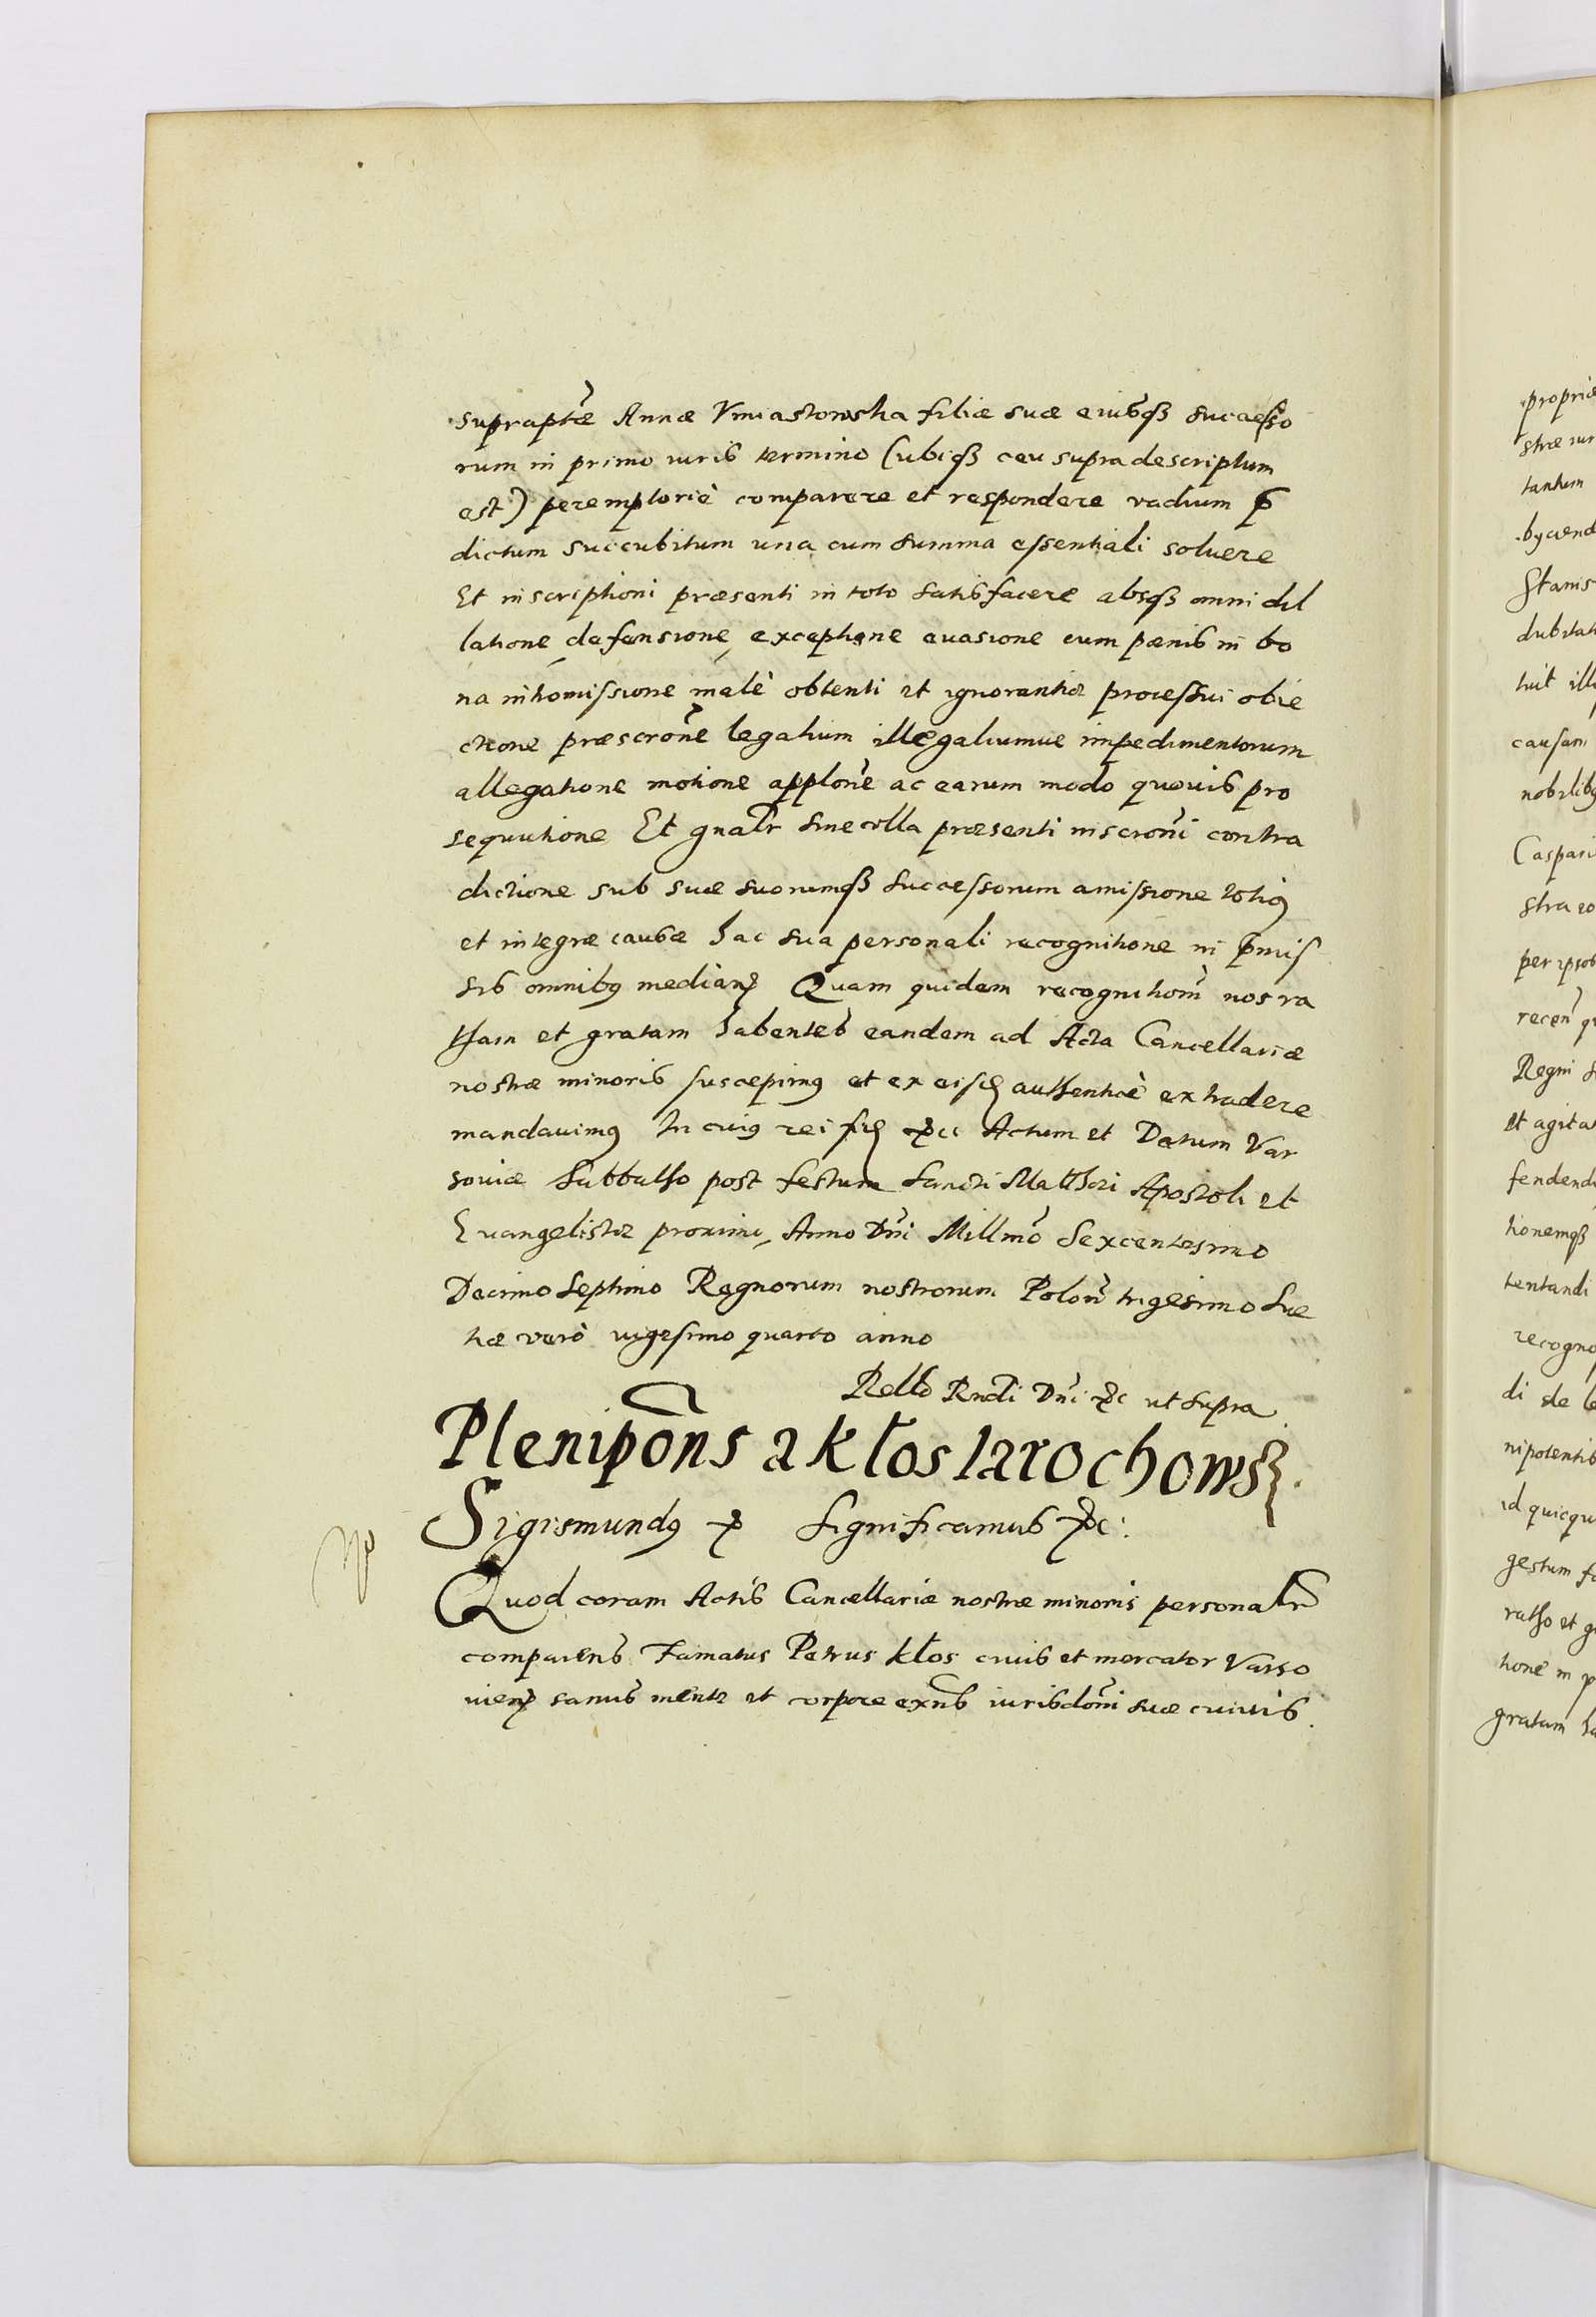 supraptae Annae Vmiastowska filiae suae eiusq3 successo
rum in primo iuris termino (ubiq3 ceu supra descriptum
est) peremptoriè comparere et respondere vadium p
dictum succubitum una cum summa essentiali soluere
Et inscriptioni praesenti in toto satisfacere absq3 omni dil
latione defensione, exceptione euasione cum paenis in bo
na intromissione malè obtenti et ignorantiae processui obie
ctione praescrone legalium illegaliumue impedimentorum
allegatione motione applone ac earum modo quouis pro
sequutione Et gnalr sine ulla praesenti inscroni contra
dictione sub suae suorumq3 successorum amissione toti9
et integrae causae hac sua personali recognitione in pmis
sis omnib9 median Quam quidem recognitiom nos ra
tham et gratam habentes eandem ad Acta Cancellariae
nostrae minoris suscepim9 et ex eisd authenticè extradere
mandauim9 In cui9 rei fid &c Actum et Datum Var
souiae Sabbatho post festum Sancti Matthaei Apostoli et
Euangelistae proximi, Anno Dni Millmo Sexcentesimo
Decimo Septimo Regnorum nostrorum Polon trigesimo Sue
tiae verò vigesimo quarto anno
Rello Rndi Dni &c ut supra
Plenipons a Kłos Iarochows
Sigismund9 & Significamus &c:
Quod coram Actis Cancellariae nostrae minoris personalr
comparens Famatus Petrus Kłos ciuis et mercator Varso
uien sanus mente et corpore exns iurisdoni suae cuiuis
propriae
strae iur
tantum
Stanis
dubitat
tuit ill
causam
nobilib9
Caspari
stra co
per ipsos
recen q
Regni
et agita
fendendi
tionemq3
tentandi
recogno
di de
nipotentis
id quicqu
gestum
ratho et g
tione in p
gratam ha